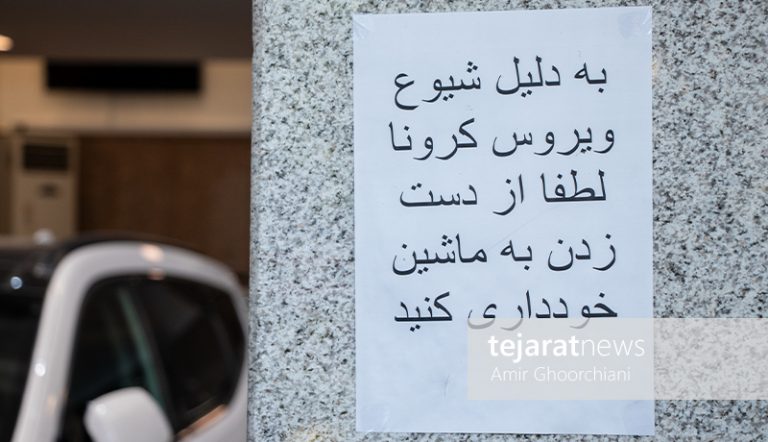 به دلیل شیوع
ویروس کرونا
لطفا از دست
زدن به ماشین
خودداری کنید
tejaratnews
Amir Ghoorchiani